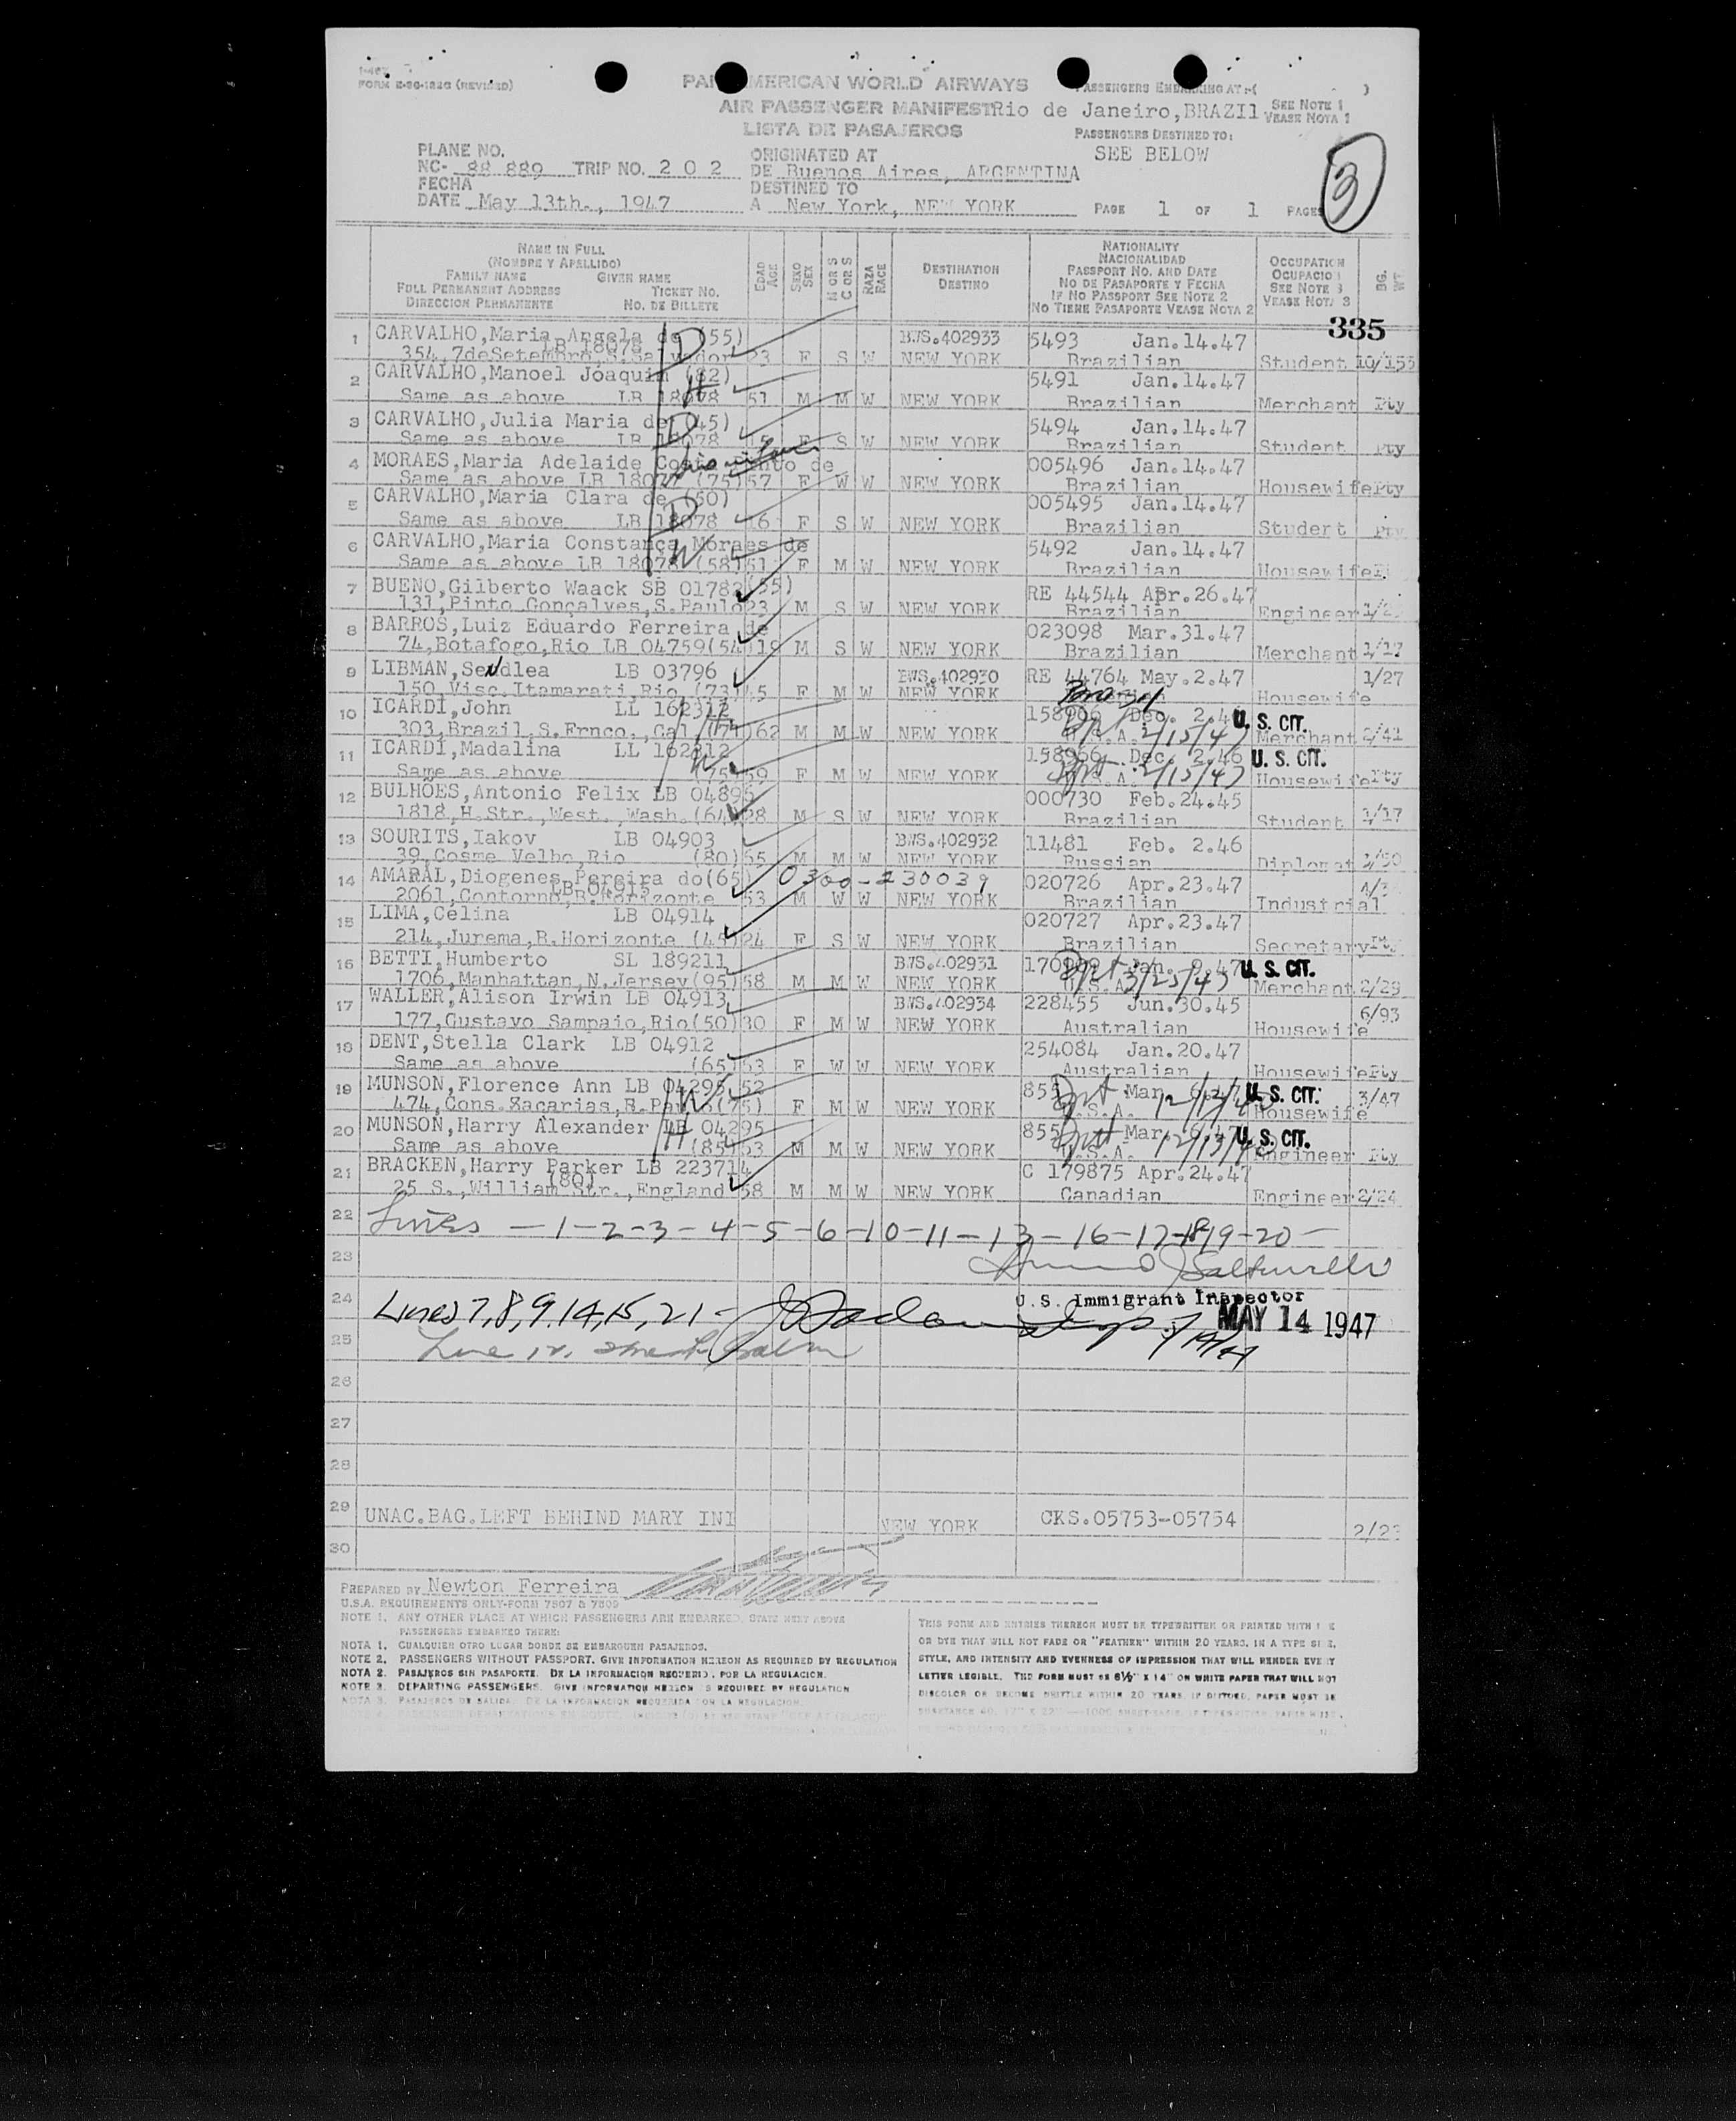 FORM E-30-1826 (REVISED)
PAN AMERICAN WORLD AIRWAYS
AIR PASSENGER MANIFEST
LISTA DE PASAJEROS
PASSENGERS EMBARKING AT:-( )
Rio de Janeiro, BRAZIl
SEE NOTE 1
VEASE NOTA 1
PASSENGERS DESTINED TO:
SEE BELOW
3
PLANE NO.
NC- 88 889 TRIP NO. 2 0 2
ORIGINATED AT
DE Buenos Aires, ARGENTINA
FECHA
DATE May 13th., 1947
DESTINED TO
A New York, NEW YORK
PAGE 1 OF 1 PAGES
NAME IN FULL
(NOMBRE Y APELLIDO)
FAMILY NAME GIVEN NAME
FULL PERMANENT ADDRESS TICKET NO.
DIRECCION PERMANENTE NO. DE BILLETE
EDAD AGE
SEXO SEX
M OR S
C OR S
RAZA RACE
DESTINATION
DESTINO
NATIONALITY
NACIONALIDAD
PASSPORT NO. AND DATE
NO DE PASAPORTE Y FECHA
IF NO PASSPORT SEE NOTE 2
NO TIENE PASAPORTE VEASE NOTA 2
OCCUPATION
OCUPACION
SEE NOTE 3
VEASE NOTA 3
BG. WT
335
1 CARVALHO,Maria Angela de (55) BWS.402933 5493 Jan.14.47
LB 18078
354,7deSetembro,S.Salvador 23 F S W NEW YORK Brazilian Student 10/155
D
2 CARVALHO,Manoel Joaquim (82) 5491 Jan.14.47
Same as above LB 18078 51 M M W NEW YORK Brazilian Merchant Pty
H
3 CARVALHO,Julia Maria de (45) 5494 Jan.14.47
Same as above LB 18078 15 F S W NEW YORK Brazilian Student Pty
D
4 MORAES,Maria Adelaide Costa Pinto de 005496 Jan.14.47
Same as above LB 18077 (75) 57 F W W NEW YORK Brazilian Housewife Pty
5 CARVALHO,Maria Clara de (50) 005495 Jan.14.47
Same as above LB 18078 16 F S W NEW YORK Brazilian Student Pty
D
6 CARVALHO,Maria Constança Moraes de 5492 Jan.14.47
Same as above LB 18078 (58) 51 F M W NEW YORK Brazilian Housewife
W
7 BUENO,Gilberto Waack SB 01782 (55) RE 44544 APr.26.47
131,Pinto Gonçalves,S.Paulo 23 M S W NEW YORK Brazilian Engineer
8 BARROS,Luiz Eduardo Ferreira de 023098 Mar.31.47
74,Botafogo,Rio LB 04759(54) 19 M S W NEW YORK Brazilian Merchant 1/17
9 LIBMAN,Sendlea LB 03796 BWS.402930 RE 44764 May.2.47 1/27
150,Visc.Itamarati,Rio (73) 45 F M W NEW YORK Brazil Housewife
10 ICARDI,John LL 162312 158906 Dec. 2.46 U. S. CIT.
303,Brazil,S.Frnco.,Cal (74) 62 M M W NEW YORK U.S.A. 2/13/47 Merchant 2/41
H
11 ICARDI,Madalina LL 162312 158966 Dec. 2.46 U. S. CIT.
Same as above (75) 59 F M W NEW YORK U.S.A. 2/13/47 Housewife Pty
W
12 BULHÕES,Antonio Felix LB 04895 000730 Feb.24.45
1818,H.Str.,West.,Wash.(64) 28 M S W NEW YORK Brazilian Student 1/17
13 SOURITS,Iakov LB 04903 BWS.402932 11481 Feb. 2.46
39,Cosme Velho,Rio (80) 65 M M W NEW YORK Russian Diplomat
14 AMARAL,Diogenes Pereira do(65) 0300-230039 020726 Apr.23.47
LB 04915
2061,Contorno,B.Horizonte 53 M W W NEW YORK Brazilian Industrial
15 LIMA,Celina LB 04914 020727 Apr.23.47
214,Jurema,B.Horizonte (45) 24 F S W NEW YORK Brazilian Secretary
16 BETTI,Humberto SL 189211 BWS.402931 Jan. 9.47 U. S. CIT.
1706,Manhattan,N.Jersey(95) 58 M M W NEW YORK U.S.A. 3/25/47 Merchant 2/29
17 WALLER,Alison Irwin LB 04913 BWS.402934 228455 Jun.30.45 6/93
177,Gustavo Sampaio,Rio(50) 30 F M W NEW YORK Australian Housewife
18 DENT,Stella Clark LB 04912 254084 Jan.20.47
Same as above (65) 53 F W W NEW YORK Australian Housewife Pty
19 MUNSON,Florence Ann LB 04295 52 855 Mar. 6.47 U. S. CIT. 3/47
474,Cons.Zacarias,B.Paulo(75) F M W NEW YORK U.S.A. Housewife
W
20 MUNSON,Harry Alexander LB 04295 855 Mar. 6.47 U. S. CIT.
Same as above (85) 53 M M W NEW YORK U.S.A. Engineer Pty
H
21 BRACKEN,Harry Parker LB 223714 C 179875 Apr.24.47
(80)
25 S.,William Str.,England 58 M M W NEW YORK Canadian Engineer 2/24
22 Lines — 1-2-3-4-5-6-10-11-13-16-17-18-19-20-
23
24 U.S. Immigrant Inspector
Lines 7,8,9,14,15,21-
MAY 14 1947
25 Line 12.
26
27
28
29 UNAC.BAG.LEFT BEHIND MARY INI NEW YORK CKS.05753-05754
30
PREPARED BY Newton Ferreira
U.S.A. REQUIREMENTS ONLY-FORM 7507 & 7509
NOTE 1. ANY OTHER PLACE AT WHICH PASSENGERS ARE EMBARKED, STATE NEXT ABOVE
PASSENGERS EMBARKED THERE:
NOTA 1. CUALQUIER OTRO LUGAR DONDE SE EMBARQUEN PASAJEROS.
NOTE 2. PASSENGERS WITHOUT PASSPORT. GIVE INFORMATION HEREON AS REQUIRED BY REGULATION
NOTA 2. PASAJEROS SIN PASAPORTE. DE LA INFORMACION REQUERIDA POR LA REGULACION.
NOTE 3. DEPARTING PASSENGERS. GIVE INFORMATION HEREON AS REQUIRED BY REGULATION
NOTA 3. PASAJEROS DE SALIDA. DE LA INFORMACION REQUERIDA POR LA REGULACION.
THIS FORM AND ENTRIES THEREON MUST BE TYPEWRITTEN OR PRINTED WITH INK
OR DYE THAT WILL NOT FADE OR "FEATHER" WITHIN 20 YEARS, IN A TYPE SIZE,
STYLE, AND INTENSITY AND EVENNESS OF IMPRESSION THAT WILL RENDER EVERY
LETTER LEGIBLE. THE FORM MUST BE 8½" X 14" ON WHITE PAPER THAT WILL NOT
DISCOLOR OR BECOME BRITTLE WITHIN 20 YEARS. IF DITTOED, PAPER MUST BE